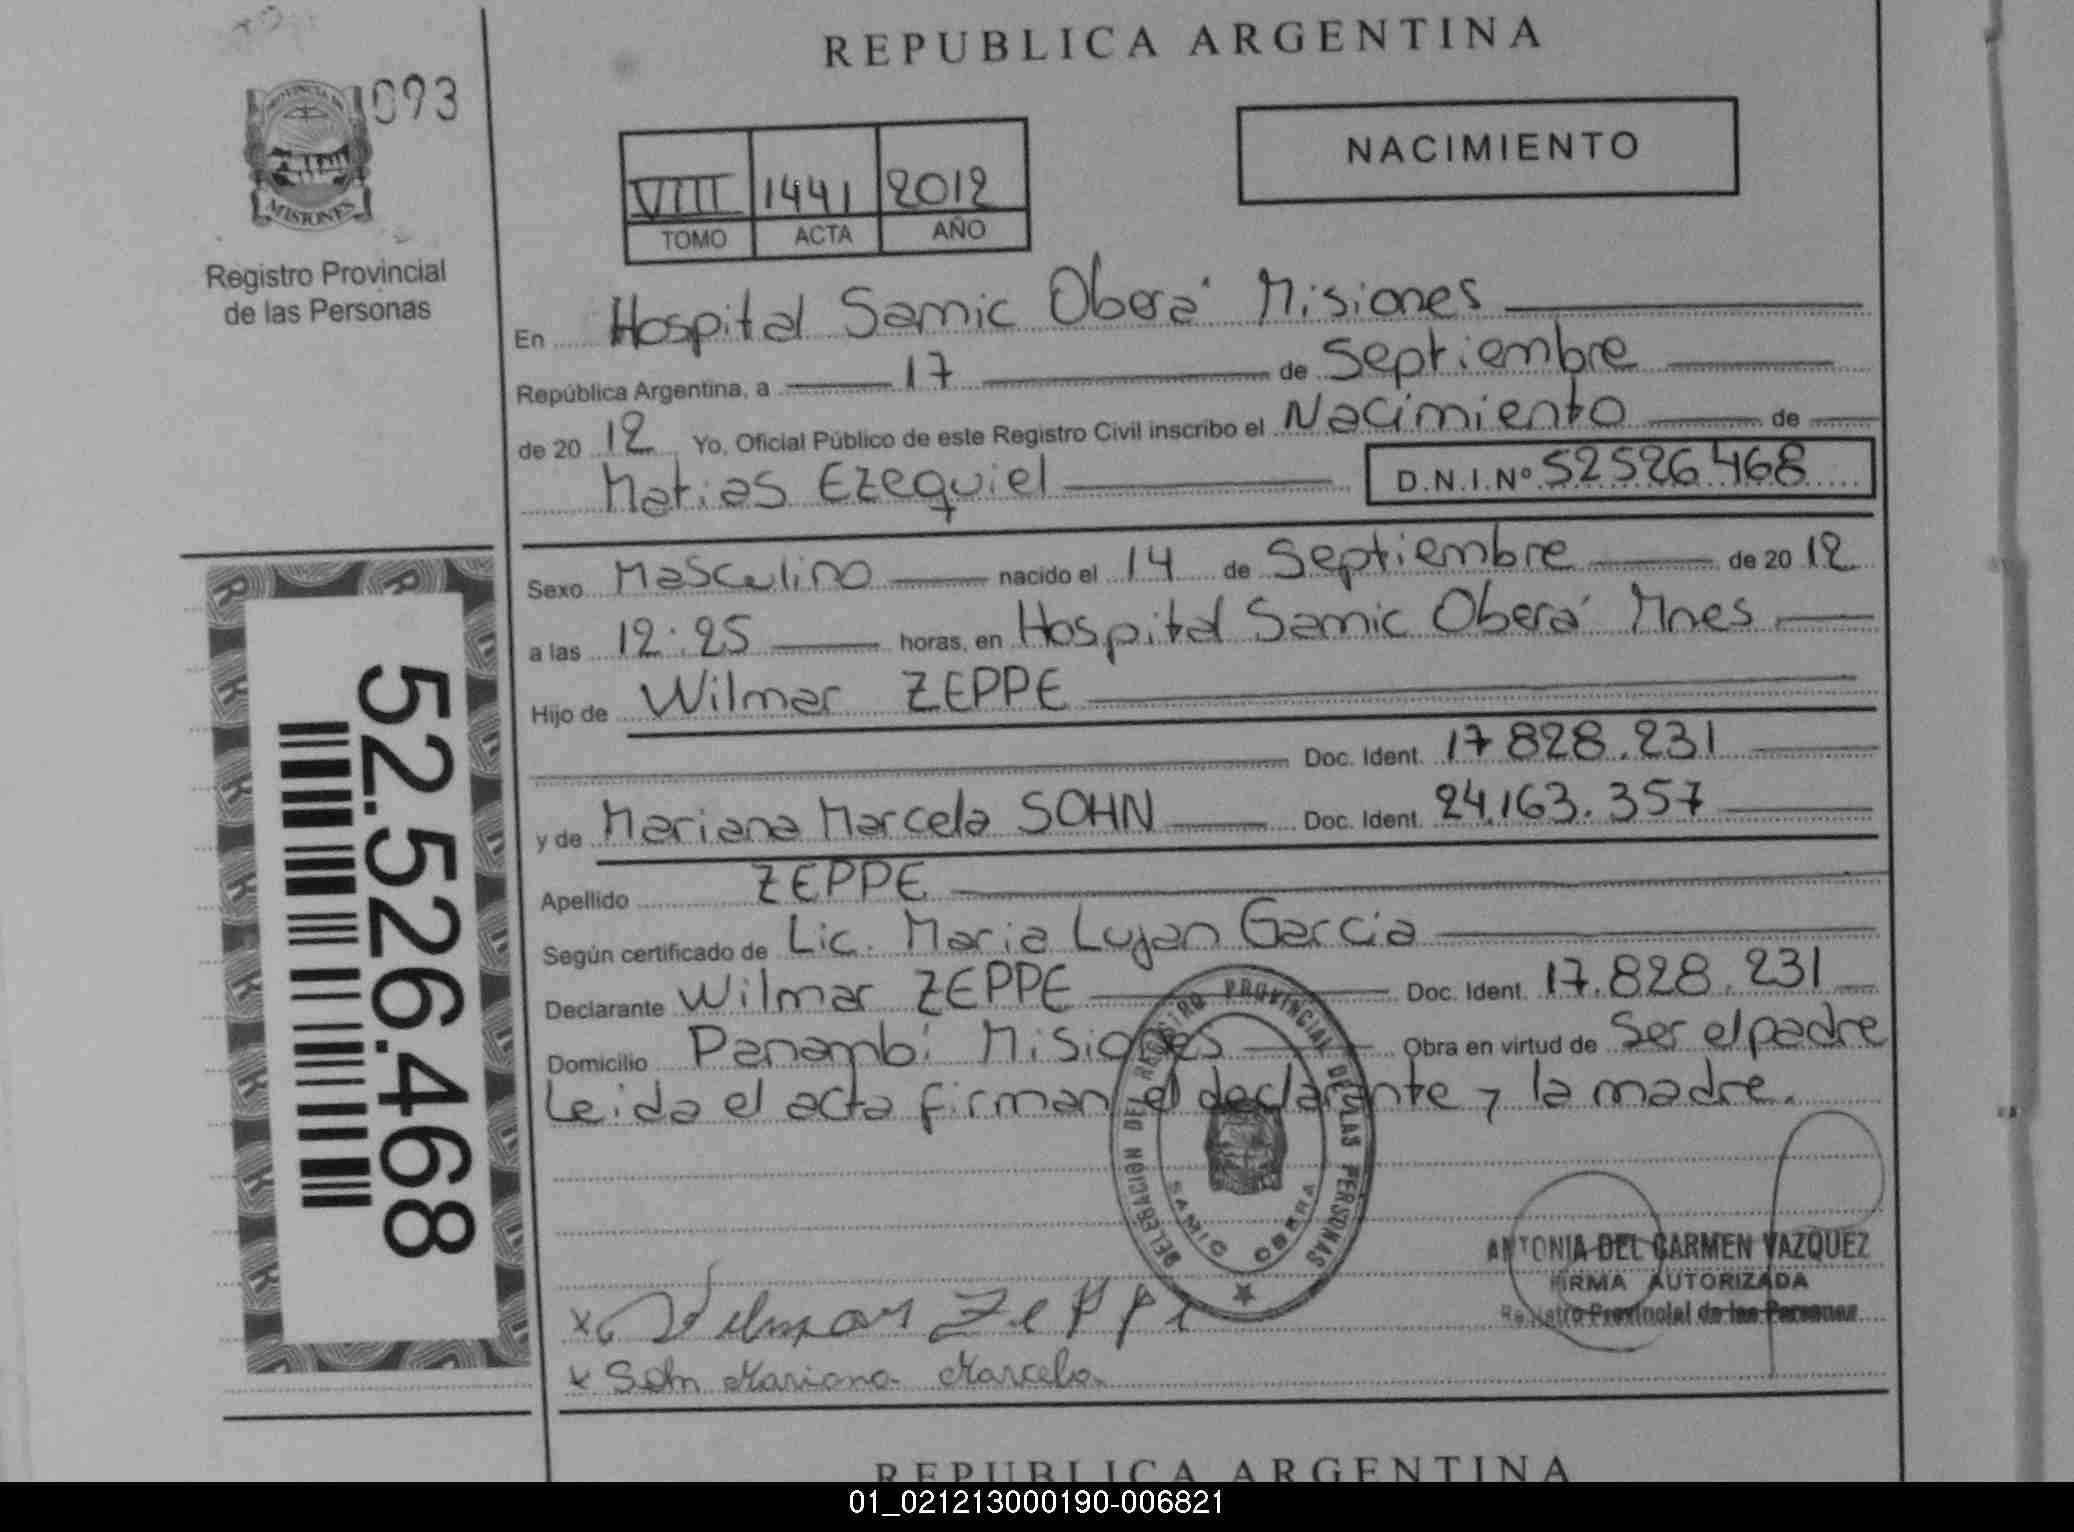 REPUBLICA ARGENTINA
093
PROVINCIA DE
MISIONES
Registro Provincial
de las Personas
NACIMIENTO
VIII 1441 2012
TOMO ACTA AÑO
En Hospital Samic Oberá Misiones
República Argentina, a 17 de Septiembre
de 2012 Yo, Oficial Público de este Registro Civil inscribo el Nacimiento de
Matias Ezequiel D.N.I.Nº 52526468
Sexo Masculino nacido el 14 de Septiembre de 2012
a las 12:25 horas, en Hospital Samic Oberá Mnes
Hijo de Wilmar ZEPPE
Doc. Ident. 17828.231
y de Mariana Marcela SOHN Doc. Ident. 24.163.357
Apellido ZEPPE
Según certificado de Lic. Maria Lujan Garcia
Declarante Wilmar ZEPPE Doc. Ident. 17.828.231
Domicilio Panambi Misiones Obra en virtud de Ser el padre
Leida el acta firman el declarante y la madre.
52.526.468
DELEGACION DEL REGISTRO PROVINCIAL DE LAS PERSONAS
SAMIC OBERA
ANTONIA DEL CARMEN VAZQUEZ
FIRMA AUTORIZADA
Registro Provincial de las Personas
x Wilmar Zeppe
x Sohn Mariana Marcela
REPUBLICA ARGENTINA
01_021213000190-006821